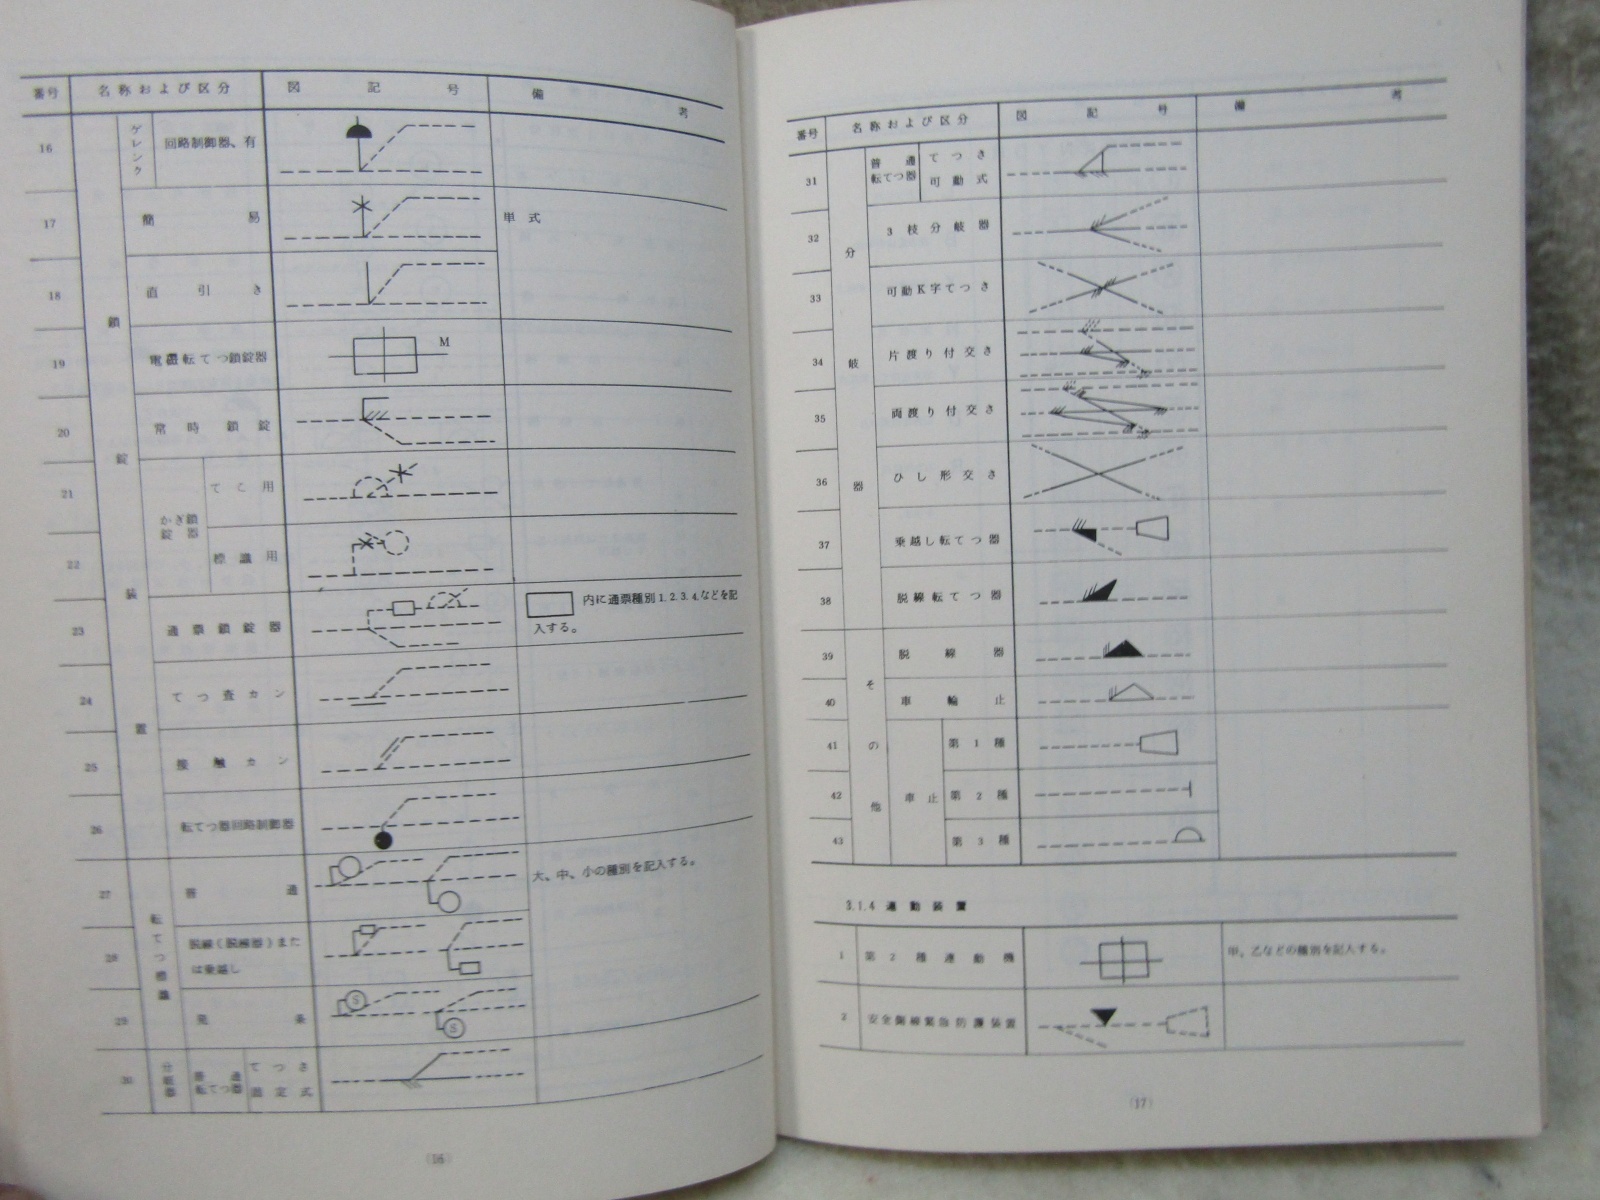 番号 名称および区分 図記号 備考
16 ゲレンク 回路制御器、有
17 簡易 単式
18 直引き
19 電磁転てつ鎖錠器 M
20 常時鎖錠
21 かぎ鎖錠器 てこ用
22 標識用
23 通票鎖錠器 内に通票種別1.2.3.4.などを記
入する。
24 てつ査カン
25 接触カン
26 転てつ器回路制御器
鎖錠装置
27 普通 大、中、小の種別を記入する。
28 脱線(脱線器)また
は乗越し
29 発条 S S
転てつ標識
30 分岐器 普通転てつ器 てつさ固定式
(16)
番号 名称および区分 図記号 備考
31 普通転てつ器 てつさ可動式
32 3枝分岐器
33 可動K字てつさ
34 片渡り付交さ
35 両渡り付交さ
36 ひし形交さ
37 乗越し転てつ器
38 脱線転てつ器
分岐器
39 脱線器
40 車輪止
41 車止 第1種
42 第2種
43 第3種
その他
3.1.4 連動装置
1 第2種連動機 甲、乙などの種別を記入する。
2 安全側線緊急防護装置
(17)